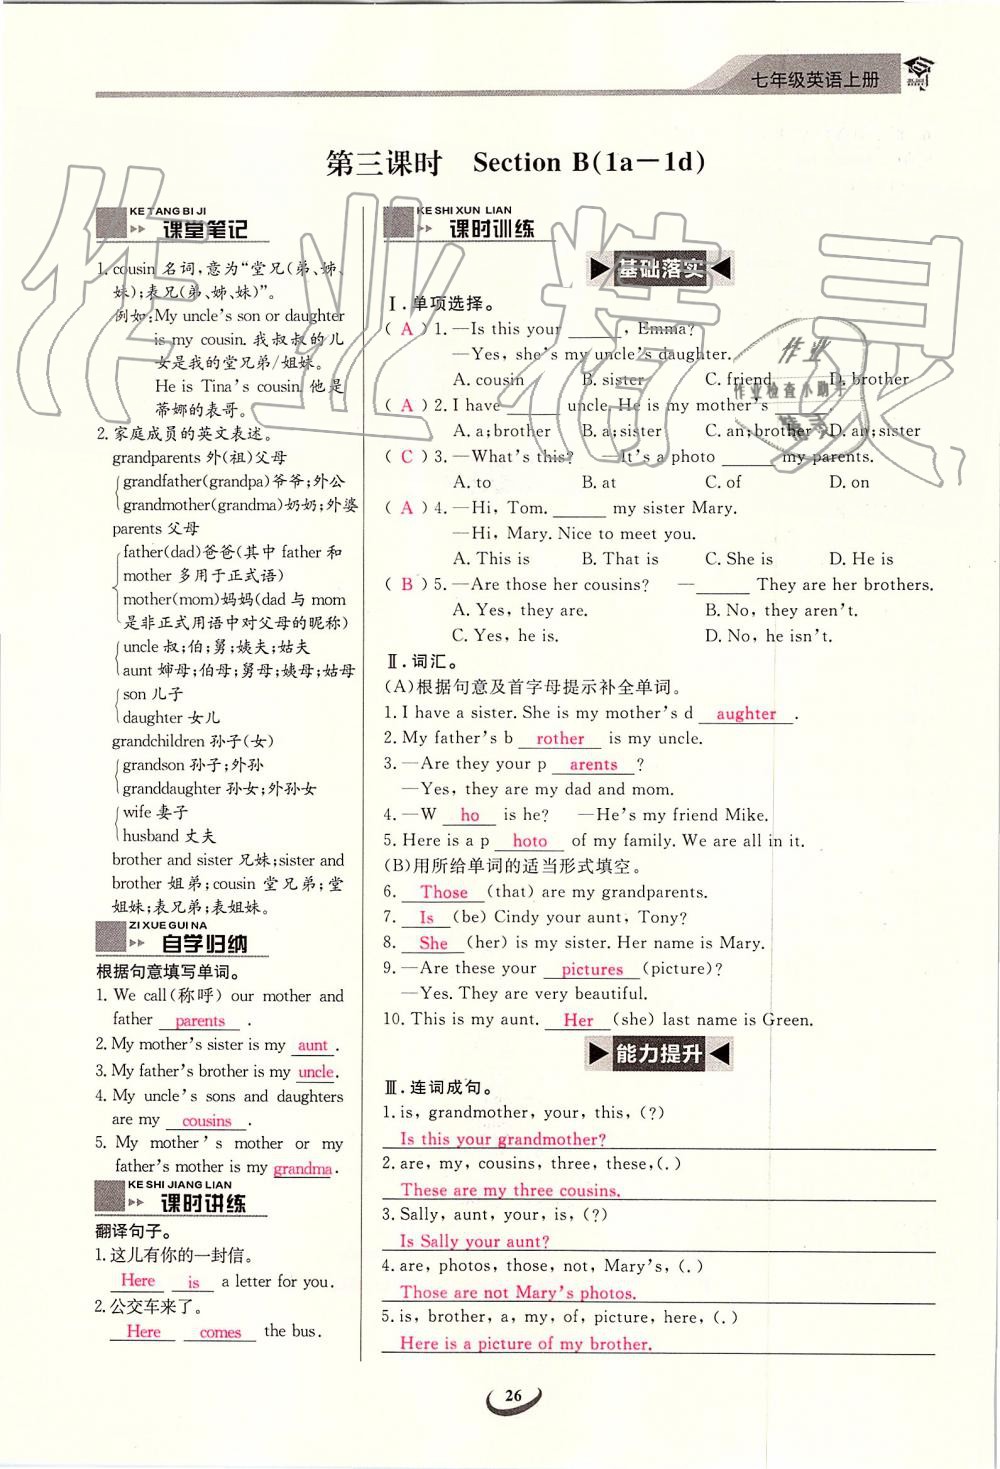 七年级英语上册
第三课时 Section B(1a—1d)
KE TANG BI JI
课堂笔记
1. cousin 名词,意为“堂兄(弟、姊、
妹);表兄(弟、姊、妹)”。
例如:My uncle's son or daughter
is my cousin. 我叔叔的儿
女是我的堂兄弟/姐妹。
He is Tina's cousin. 他是
蒂娜的表哥。
2. 家庭成员的英文表述。
grandparents 外(祖)父母
grandfather(grandpa)爷爷;外公
grandmother(grandma)奶奶;外婆
parents 父母
father(dad)爸爸(其中 father 和
mother 多用于正式语)
mother(mom)妈妈(dad 与 mom
是非正式用语中对父母的昵称)
uncle 叔;伯;舅;姨夫;姑夫
aunt 婶母;伯母;舅母;姨母;姑母
son 儿子
daughter 女儿
grandchildren 孙子(女)
grandson 孙子;外孙
granddaughter 孙女;外孙女
wife 妻子
husband 丈夫
brother and sister 兄妹;sister and
brother 姐弟;cousin 堂兄弟;堂
姐妹;表兄弟;表姐妹。
ZI XUE GUI NA
自学归纳
根据句意填写单词。
1. We call(称呼) our mother and
father parents .
2. My mother's sister is my aunt .
3. My father's brother is my uncle.
4. My uncle's sons and daughters
are my cousins .
5. My mother's mother or my
father's mother is my grandma.
KE SHI JIANG LIAN
课时讲练
翻译句子。
1. 这儿有你的一封信。
Here is a letter for you.
2. 公交车来了。
Here comes the bus.
KE SHI XUN LIAN
课时训练
基础落实
Ⅰ. 单项选择。
( A ) 1. —Is this your ______, Emma?
—Yes, she's my uncle's daughter.
A. cousin B. sister C. friend D. brother
( A ) 2. I have ______ uncle. He is my mother's ______.
A. a;brother B. a;sister C. an;brother D. an;sister
( C ) 3. —What's this? —It's a photo ______ my parents.
A. to B. at C. of D. on
( A ) 4. —Hi, Tom. ______ my sister Mary.
—Hi, Mary. Nice to meet you.
A. This is B. That is C. She is D. He is
( B ) 5. —Are those her cousins? —______ They are her brothers.
A. Yes, they are. B. No, they aren't.
C. Yes, he is. D. No, he isn't.
Ⅱ. 词汇。
(A)根据句意及首字母提示补全单词。
1. I have a sister. She is my mother's d aughter .
2. My father's b rother is my uncle.
3. —Are they your p arents ?
—Yes, they are my dad and mom.
4. —W ho is he? —He's my friend Mike.
5. Here is a p hoto of my family. We are all in it.
(B)用所给单词的适当形式填空。
6. Those (that) are my grandparents.
7. Is (be) Cindy your aunt, Tony?
8. She (her) is my sister. Her name is Mary.
9. —Are these your pictures (picture)?
—Yes. They are very beautiful.
10. This is my aunt. Her (she) last name is Green.
能力提升
Ⅲ. 连词成句。
1. is, grandmother, your, this, (?)
Is this your grandmother?
2. are, my, cousins, three, these, (.)
These are my three cousins.
3. Sally, aunt, your, is, (?)
Is Sally your aunt?
4. are, photos, those, not, Mary's, (.)
Those are not Mary's photos.
5. is, brother, a, my, of, picture, here, (.)
Here is a picture of my brother.
26
作业精灵
作业
作业检查小助手
精灵